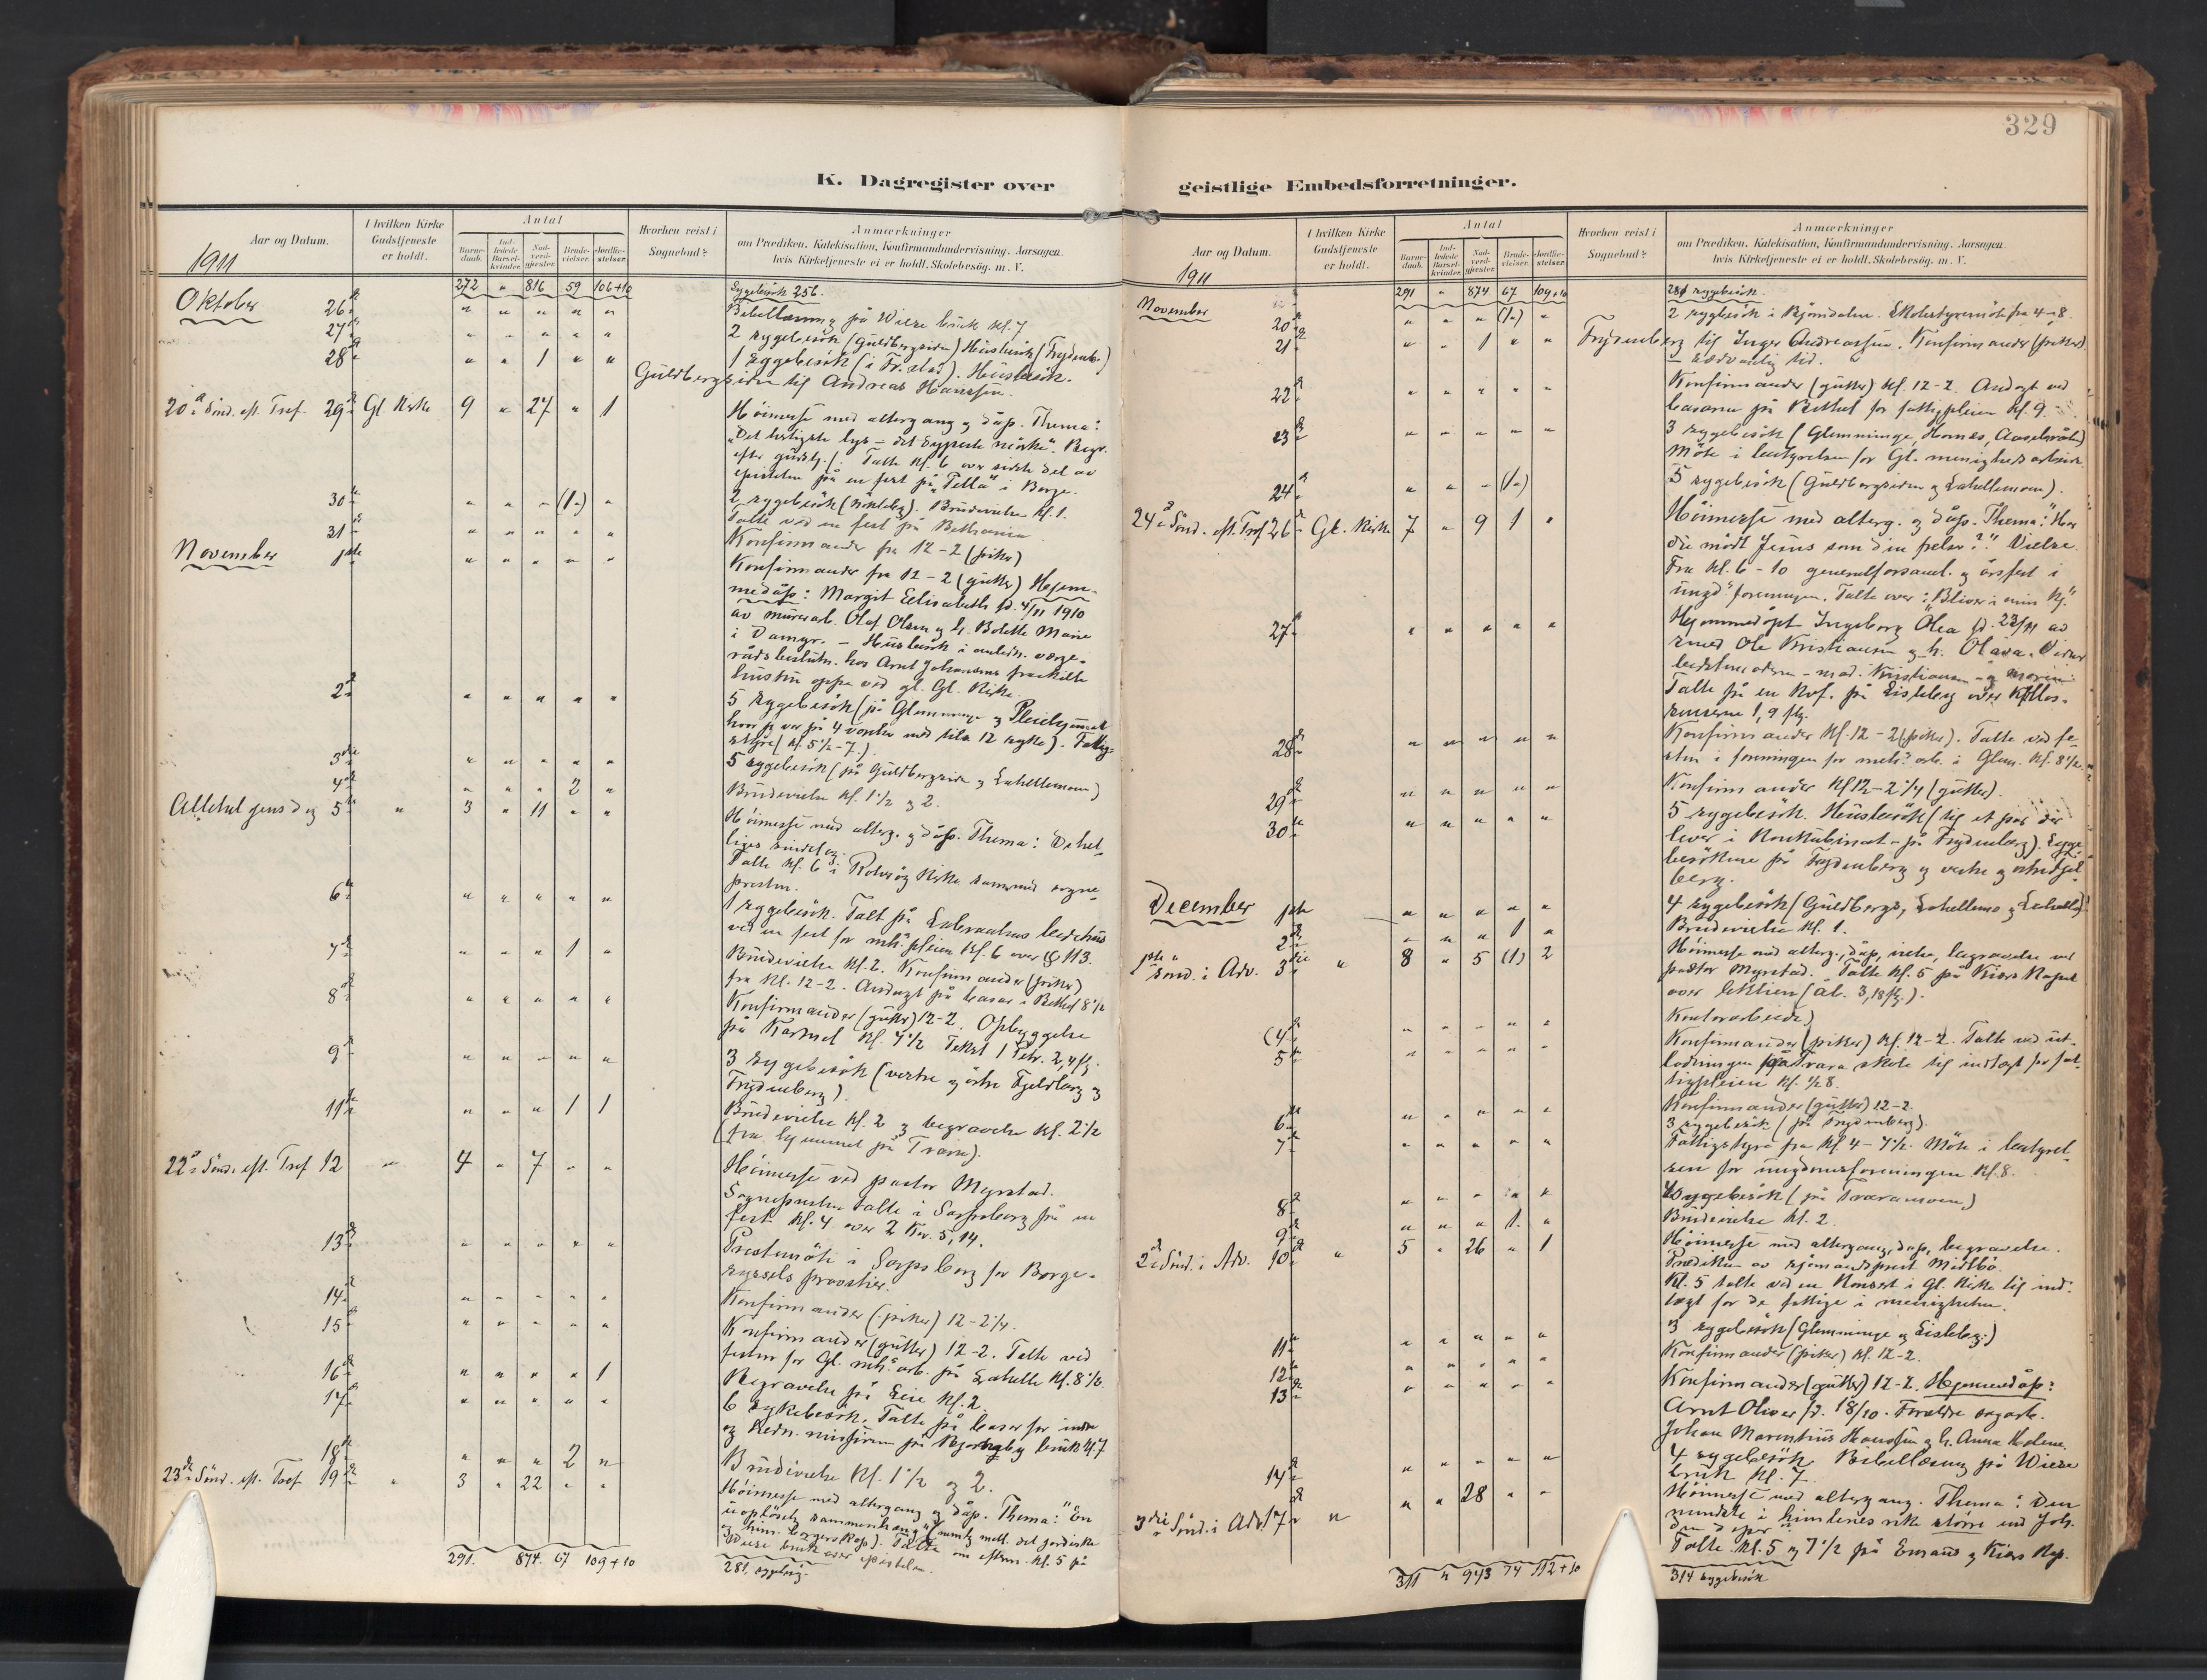 329
K. Dagregister over
geistlige Embedsforretninger.
Aar og Datum.
1911
I hvilken Kirke Gudstjeneste er holdt.
Antal
Barne-daab.
Ind-ledede Barsel-kvinder.
Nad-verd-gjester.
Brude-vielser.
Jordfæ-stelser.
Hvorhen reist i Sognebud?
Anmærkninger
om Prædiken, Katekisation, Konfirmandundervisning, Aarsagen
hvis Kirketjeneste ei er holdt, Skolebesøg. m. V.
272 " 816 59 106+10 Sygebesök 256.
Oktober 26 " " " " " Bibellæsning på Wiese bruk kl. 7
27 " " " " " 2 sygebesök (Guldbergsiden) Husbesök (Frydenb.)
28 " " 1 " " 1 sygebesök (i Fr.stad). Husbesök.
Guldbergsiden til Andreas Hanssen.
20 Sönd. eft. Tref. 29 Gl. Kirke 9 " 27 " 1 Höimesse med altergang og dåp. Thema:
"Det herligste lys - det dypeste mörke". Begr.
efter gudstj. Talte kl. 6 over sidste del av
epistelen på en fest på "Tella" i Borge.
30 " " " (1) " 2 sygebesök. Brudevielse kl. 1.
Talte ved en fest på Bethania
31 " " " " " Konfirmander fra 12-2 (piker)
November 1ste " " " " " Konfirmander fra 12-2 (gutter) Hjem-
medåp: Margit Elisabeth fd. 4/11 1910
av murerarb. Olaf Olsen og h. Bolette Marie
i Damgr. - Husbesök i anledn. verge-
rådsbeslutn. hos Arnt Johansens fraskilte
hustru oppe ved gl. Gl. Kirke.
2 " " " " " 5 sygebesök (på Glemminge og Pleiehjemmet
hvor jeg var på 4 værelser med tils. 12 syke). Fattig-
styre (kl. 5½-7.)
3die " " " " " 5 sygebesök (på Guldbergsiden og Lahellemoen)
4 " " " 2 " Brudevielse kl. 1½ og 2.
Allehelgensdag 5 " 3 " 11 " " Höimesse med alterg. og dåp. Thema: De hel-
liges sindelag.
Talte kl. 6 i Rolvsöy Kirke sammen med sogne-
presten.
6 " " " " " 1 sygebesök. Talt på Tabernaklus bedehus
ved en fest for mh.pleien kl. 6 over § 113.
7 " " " 1 " Brudevielse kl. 2. Konfirmander (piker)
fra kl. 12-2. Andagt på basar i Bethel 8½
8 " " " " " Konfirmander (gutter) 12-2. Opbyggelse
på Karmel kl. 7½ Tekst 1 Petr. 2, 4 flg.
9 " " " " " 3 sygebesök (vestre og östre Fjeldberg og
Frydenberg).
11 " " " 1 1 Brudevielse kl. 2 og begravelse kl. 2½
(fra hjemmet på Trara).
22 Sönd. eft. Tref 12 " 4 " 7 " " Höimesse ved pastor Myrstad.
Sognepresten talte i Sarpsborg på en
fest kl. 4 over 2 Kor. 5, 14.
13 " " " " " Prestemöte i Sarpsborg for Borge-
syssels provstier.
14 " " " " " Konfirmander (piker) 12-2¼.
15 " " " " " Konfirmander (gutter) 12-2. Talte ved
festen for Gl. mh. arb. på Lahelle kl. 8½.
16 " " " " 1 Begravelse på Leie kl. 2.
17 " " " " " 6 sykebesök. Talte på basar for indre
og Hedn. missionen på Bjørneby bruk kl. 7
18 " " " 2 " Brudevielse kl. 1½ og 2.
23 Sönd. eft. Tref 19 " 3 " 22 " " Höimesse med altergang og dåp. Thema: "En
uoplöselig sammenhæng" (nemlig mell. det jordiske
og him. borgerskap). Talte om efterm. kl. 5 på
Wiese bruk over epistelen.
291. 874 67 109+10 281 sygebesög.
Aar og Datum.
1911
I hvilken Kirke Gudstjeneste er holdt.
Antal
Barne-daab.
Ind-ledede Barsel-kvinder.
Nad-verd-gjester.
Brude-vielser.
Jordfæ-stelser.
Hvorhen reist i Sognebud?
Anmærkninger
om Prædiken, Katekisation, Konfirmandundervisning, Aarsagen
hvis Kirketjeneste ei er holdt, Skolebesög. m. V.
291 " 874 67 109+10 281 sygebesök.
November 20 " " " (1) " 2 sygebesök i Bjömdalen. Skolestyremöte fra 4-8.
21 " " 1 " " Frydenberg til Inger Andreassen. Konfirmander (piker)
sedvanlig tid.
22 " " " " " Konfirmander (gutter) kl. 12-2. Andagt ved
basaren på Bethel for fattigpleien kl. 9.
23 " " " " " 3 sygebesök (Glemminge, Hornes,
Möte i bestyrelsen for Gl. menighedsarbeide.
24 " " " (1) " 5 sygebesök (Guldbergsiden og Lahellemoen).
24 Sönd. eft. Tref 26 Gl. Kirke 7 " 9 1 " Höimesse med alterg. og dåp. Thema: "Har
du mödt Jesus som din frelser?" Vielse.
Fra kl. 6-10 generalforsaml. og årsfest i
ungd.foreningen. Talte over: "Bliver i min Kj."
27 " " " " " Hjemmedöpt Ingeborg Olea fd. 23/11 av
smed Ole Kristiansen og h. Olava.
Talte på en Kvf. på Lisleby over Kollos-
senserne 1, 9 flg.
28 " " " " " Konfirmander kl. 12-2 (piker). Talte ved fe-
sten i foreningen for mh. arb. i Glem. kl. 8½.
29 " " " " " Konfirmander kl 12-2¼ (gutter).
30 " " " " " 5 sygebesök. Husbesök (til et par der
lever i Konkubinat - på Frydenberg). Syge-
besökene på Frydenberg og vestre og östre Fjel-
berg.
December 1ste " " " " " 4 sygebesök (Guldbergs., Lahellemo og Lahelle)
2 " " " 1 " Brudevielse kl. 1.
1ste Sönd. i Adv. 3die " 8 " 5 (1) 2 Höimesse med alterg., dåp, vielse, begravelse ved
pastor Myrstad. Talte kl. 5 på Kiærs Kapel
over lektien (åb. 3, 18 flg.).
(4 " " " " " Kontorarbeide)
5 " " " " " Konfirmander (piker) kl. 12-2. Talte ved ut-
lodningen på Trara skole til indtægt for fat-
tigpleien kl. ½8.
6 " " " " " Konfirmander (gutter) 12-2.
3 sygebesök (på Frydenberg).
7 " " " " " Fattigstyre fra kl. 4-7½. Möte i bestyrel-
sen for ungdomsforeningen kl. 8.
8 " " " " " sygebesök (på Traramoen)
9 " " " 1 " Brudevielse kl. 2.
2 Sönd. i Adv. 10 " 5 " 26 " 1 Höimesse med altergang, dåp, begravelse.
Prædiken av sjömandsprest Midtbö.
Kl. 5 talte ved en Konsert i Gl. Kirke til ind-
tægt for de fattige i menigheten.
11 " " " " " 3 sygebesök (Glemminge og Lisleby.)
12 " " " " " Konfirmander (piker) kl. 12-2.
13 " " " " " Konfirmander (gutter) 12-2. Hjemmedåp:
Arnt Oliver fd. 18/10. Forældre sagarb.
Johan Marentius Hanssen og h. Anna Helene.
14 " " " " " 4 sygebesök. Bibellæsning på Wiese
bruk kl. 7.
3die Sönd. i Adv 17 " " " 28 " " Höimesse med altergang. Thema: Den
mindste i himlenes rike större end Joh.
den döper
Talte kl. 5 og 7½ på Emaus og Kiærs Kap.
311 " 943 74 112+10 314 sygebesök